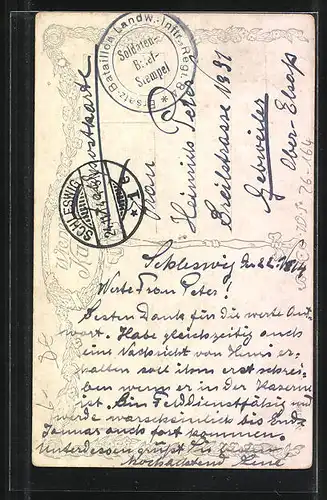 Ersatz-Bataillon Landw.-Inftr.-Regt. 8
Soldaten-
Brief-
Stempel
Feldpostkarte
SCHLESWIG
Frau
Heinrich Peter
Breilstrasse 1331
Gebweiler
Ober-Elsass
Schleswig den 22.
Werte Frau Peter!
Besten Dank für die werte Ant-
wort. Habe gleichzeitig auch
eine Nachricht von Henri er-
halten soll ihm erst schrei-
ben wenn er in der Kaserne
ist. Bin Felddienstfähig und
werde warscheinlich bis End-
Januar auch fort kommen.
Unterdessen grüßt Sie bestens
Hochachtend